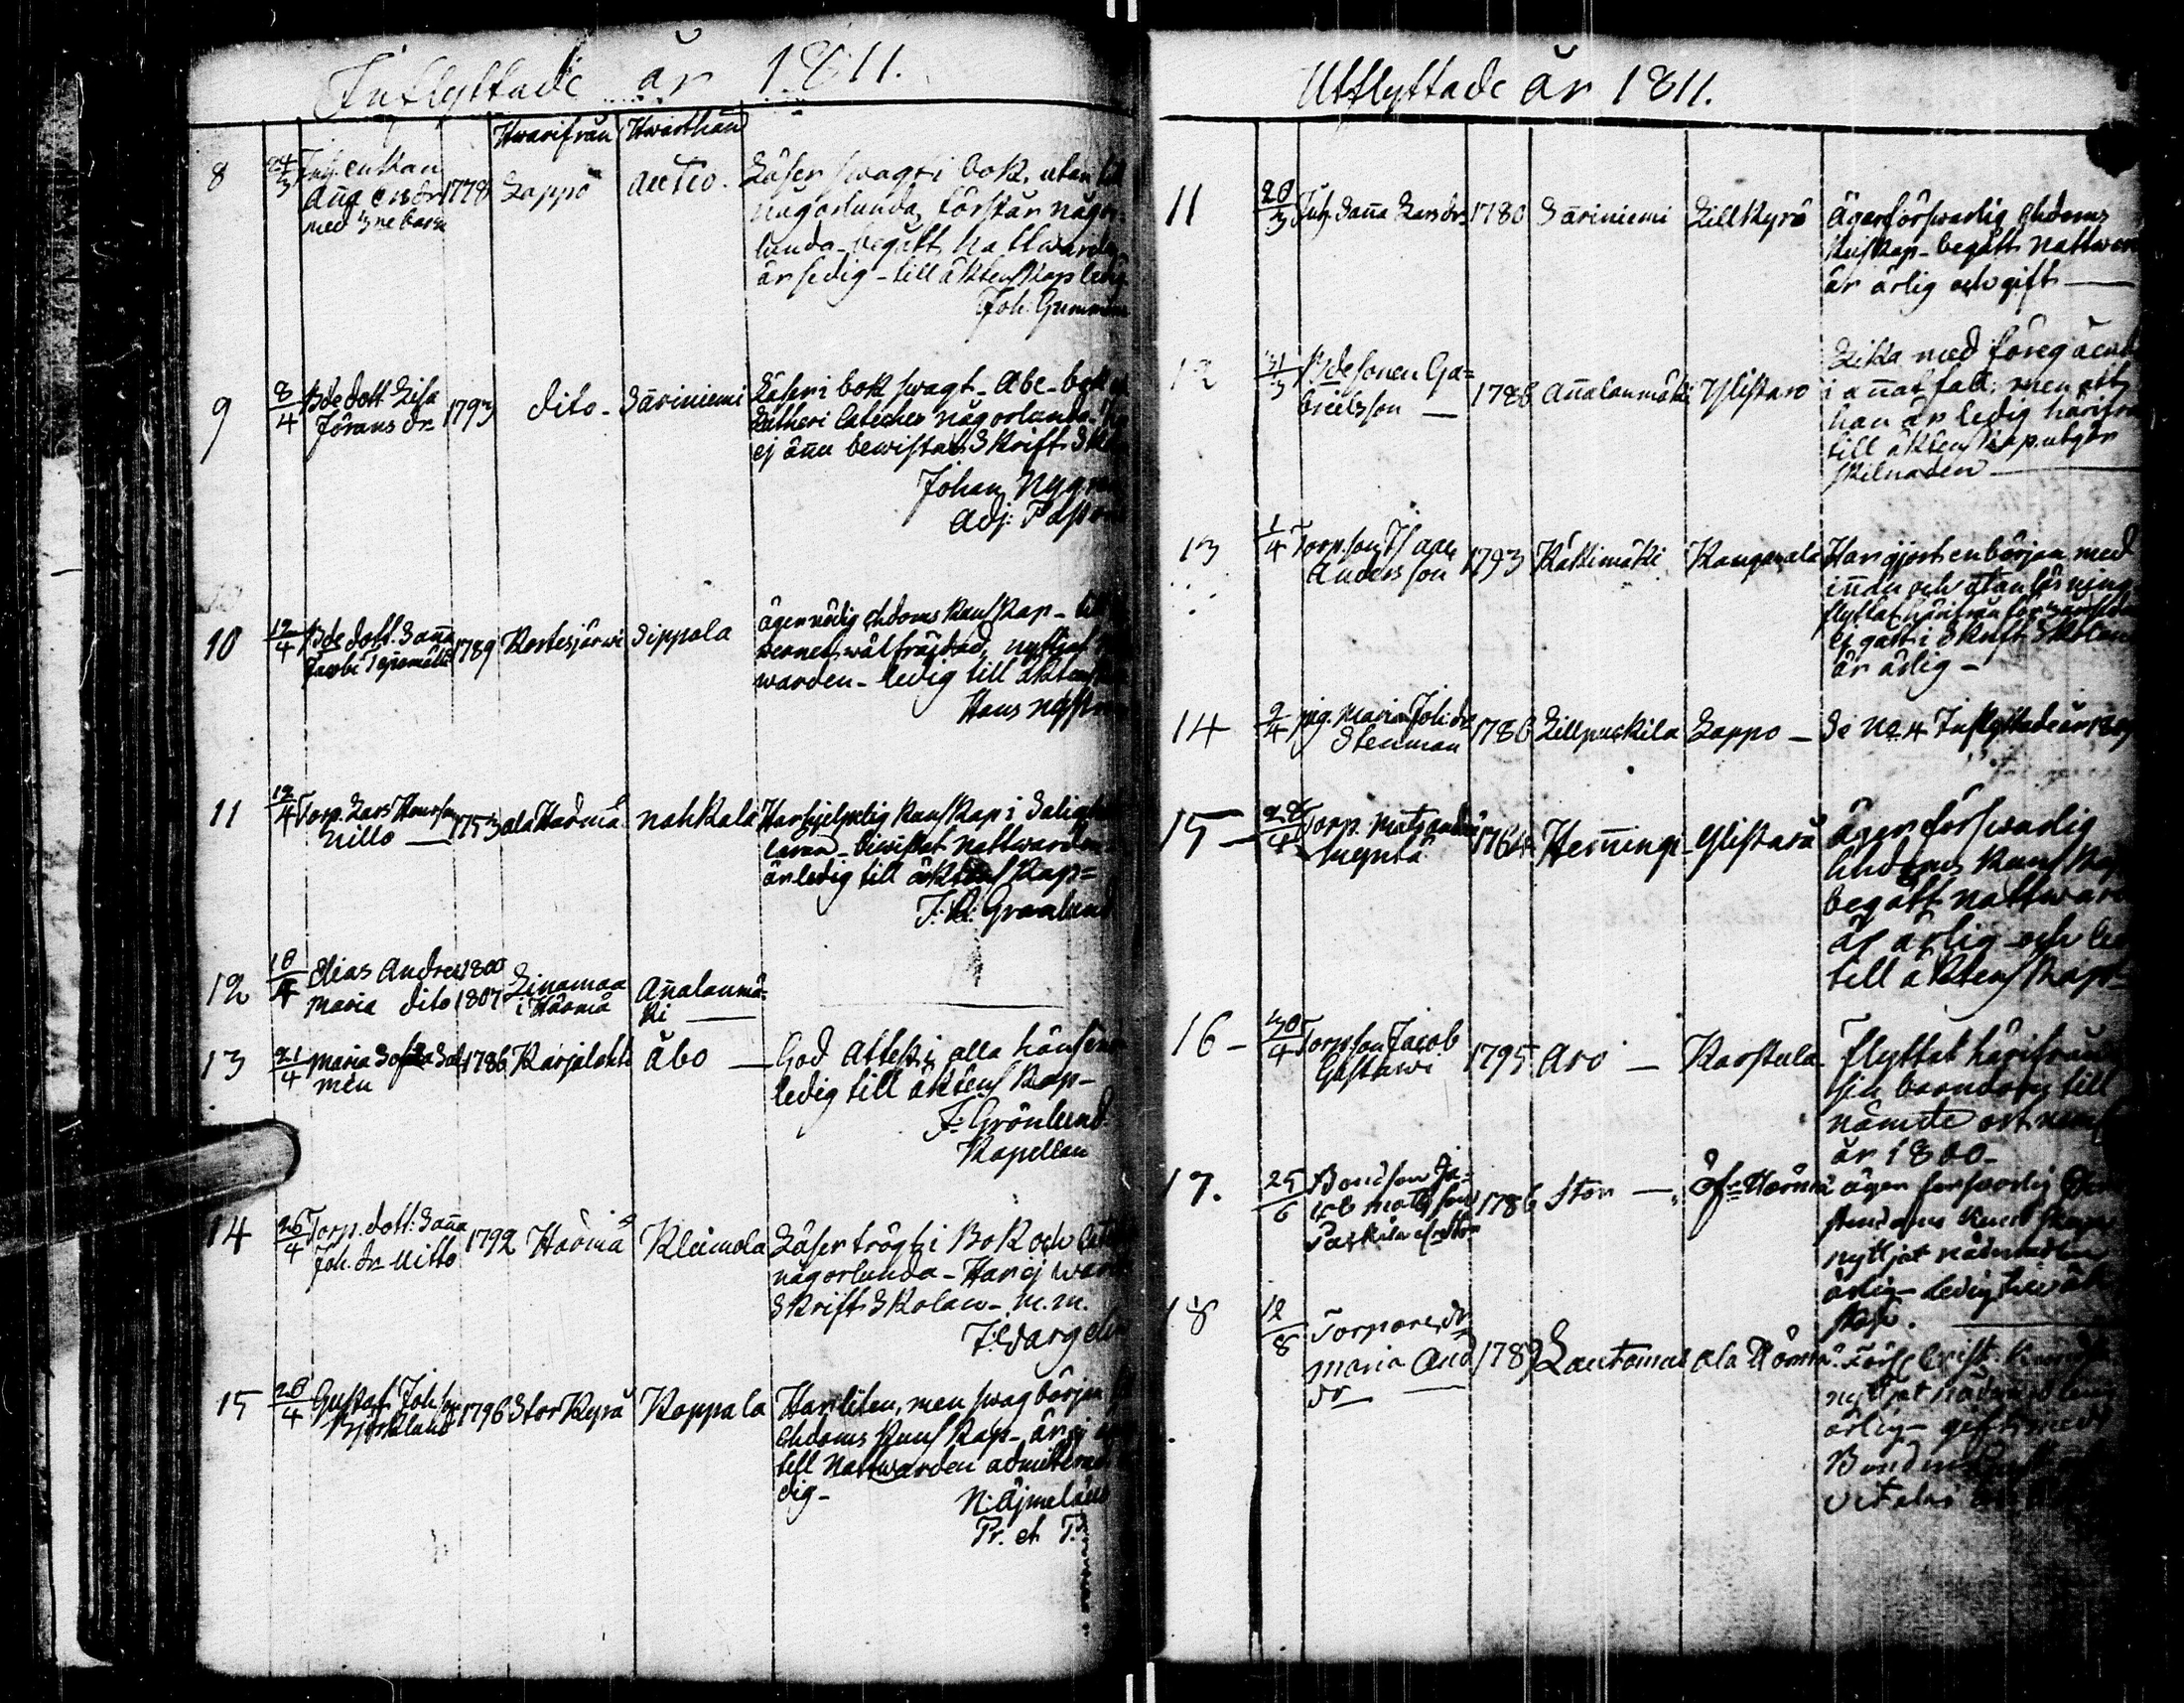 Inflyttade år 1811.
Hwarifrån Hwarthän
8 24/3 Inh. enkan
Aña Ersdr 1778 Lappo Autio.
med 3ne barn
Läser swagt i bok, utan till
någorlunda, förstår någor-
lunda - begått Nattwarden
är sedig - till äktenskap ledig
Joh. Gummerus
9 8/4 Bdedott Lisa
Jörans dr 1793 dito - Säriniemi
Läser i bok swagt - Abc-bok
Lutheri Cateches någorlunda
ej äñu bewistat Skrift Skolan
Johan Nygren
Adj: Pastor
10 12/4 Bdedott. Saña
Jacobi 1789 Kortesjärwi Sippola
äger nödig Chdoms kunskap - till
wärnet wälfräjdad, nyttjat
warden - ledig till äktenskap
Hans
11 12/4 Torp. Lars Hansson
Nillo — 1753 ala Härmä Nahkala
Har hjelplig kunskap i Salighets
läran - biwistat nattwarden
är ledig till äktenskap =
J. R. Granlund
12 18/4 Elias Andres 1800
Maria dito 1807 Linamaa
i Härmä
Añalanmä-
ki —
13 21/4 Maria Sofia Sal-
men 1786 Karjalohtt Åbo —
God Attest i alla hänseende
ledig till äktenskap -
F: Grönlund
Kapellan
14 26/4 Torp. dott: Saña
Joh. dr Uitto 1792 Härmä Kleimola
Läser trögt i Bok och Cate
någorlunda - Har ej warit
Skrift Skolan - m.m.
J: Wargelin
15 28/4 Gustaf Johsson
Björklund 1796 Stor Kyrå Koppala
Har liten, men swag början
Chdoms kunskap - är ej
till Nattwarden admitterad
dig -
N: Äjmelæus
Pr. et P.
Utflyttade år 1811.
11 20/3 Inh. Saña Lars dr 1780 Säriniemi Lillkyrå
Äger förswarlig Chdoms
kunskap - begått nattward
är ärlig och gift —
12 31/3 Bdesonen Ga-
brielsson — 1788 Añalanmäki Ylistaro
Lika med föregående
i añat fall; men att
han är ledig härifrån
till äktenskap utgör
skilnaden —
13 1/4 Torp.son Isaac
Andersson 1793 Käkimäki Kangasala
Har gjort en början med
iñan och utanläsning
flyttat härifrån för
ej gått i Skrift Skolan
är ärlig -
14 9/4 pig. Maria Joh: dr
Stenman 1786 Lillpuskila Lappo —
Se No 4 Inflyttade år 1809
15 - 28/4 Torp. Mats
1764 Heñingi - Ylistaro
äger förswarlig
Chdoms kunskap
begått nattward
är ärlig och led
till äktenskap -
16 - 30/4 Torpson Jacob
Gustawi 1795 Aro — Karstula
Flyttat härifrån
sin barndom till
nämde ort neml
år 1800 -
17. 25/6 Bondson Ja-
cob Matsson 1786 Stor — Öfr Härmä
äger förswarlig
stendoms kunskap
nyttjat nådemedlen
ärlig - ledig till äkt
skap. —
18 12/8 Torpare dr
Maria And
dr — 1789 Lautamus ala Härmä
Förs. Crist. kunsk
nyttjat nådemedlen
ärlig - gift med
Bonden